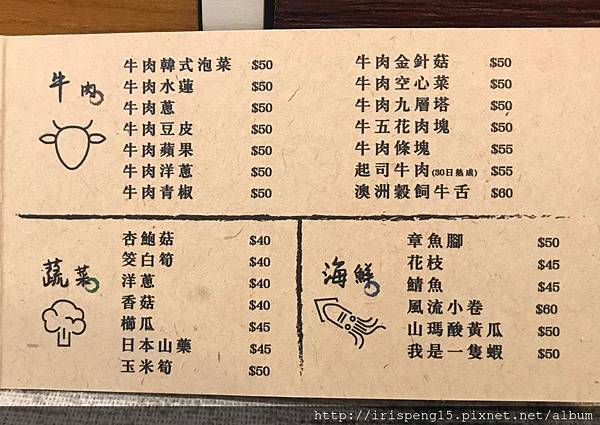 牛肉
牛肉韓式泡菜 $50
牛肉水蓮 $50
牛肉蔥 $50
牛肉豆皮 $50
牛肉蘋果 $50
牛肉洋蔥 $50
牛肉青椒 $50
牛肉金針菇 $50
牛肉空心菜 $50
牛肉九層塔 $50
牛五花肉塊 $50
牛肉條塊 $55
起司牛肉(30日熟成) $55
澳洲穀飼牛舌 $60
蔬菜
杏鮑菇 $40
筊白筍 $40
洋蔥 $40
香菇 $40
櫛瓜 $45
日本山藥 $45
玉米筍 $50
海鮮
章魚腳 $50
花枝 $45
鯖魚 $45
風流小卷 $60
山瑪酸黃瓜 $50
我是一隻蝦 $50
http://irispeng15.pixnet.net/album